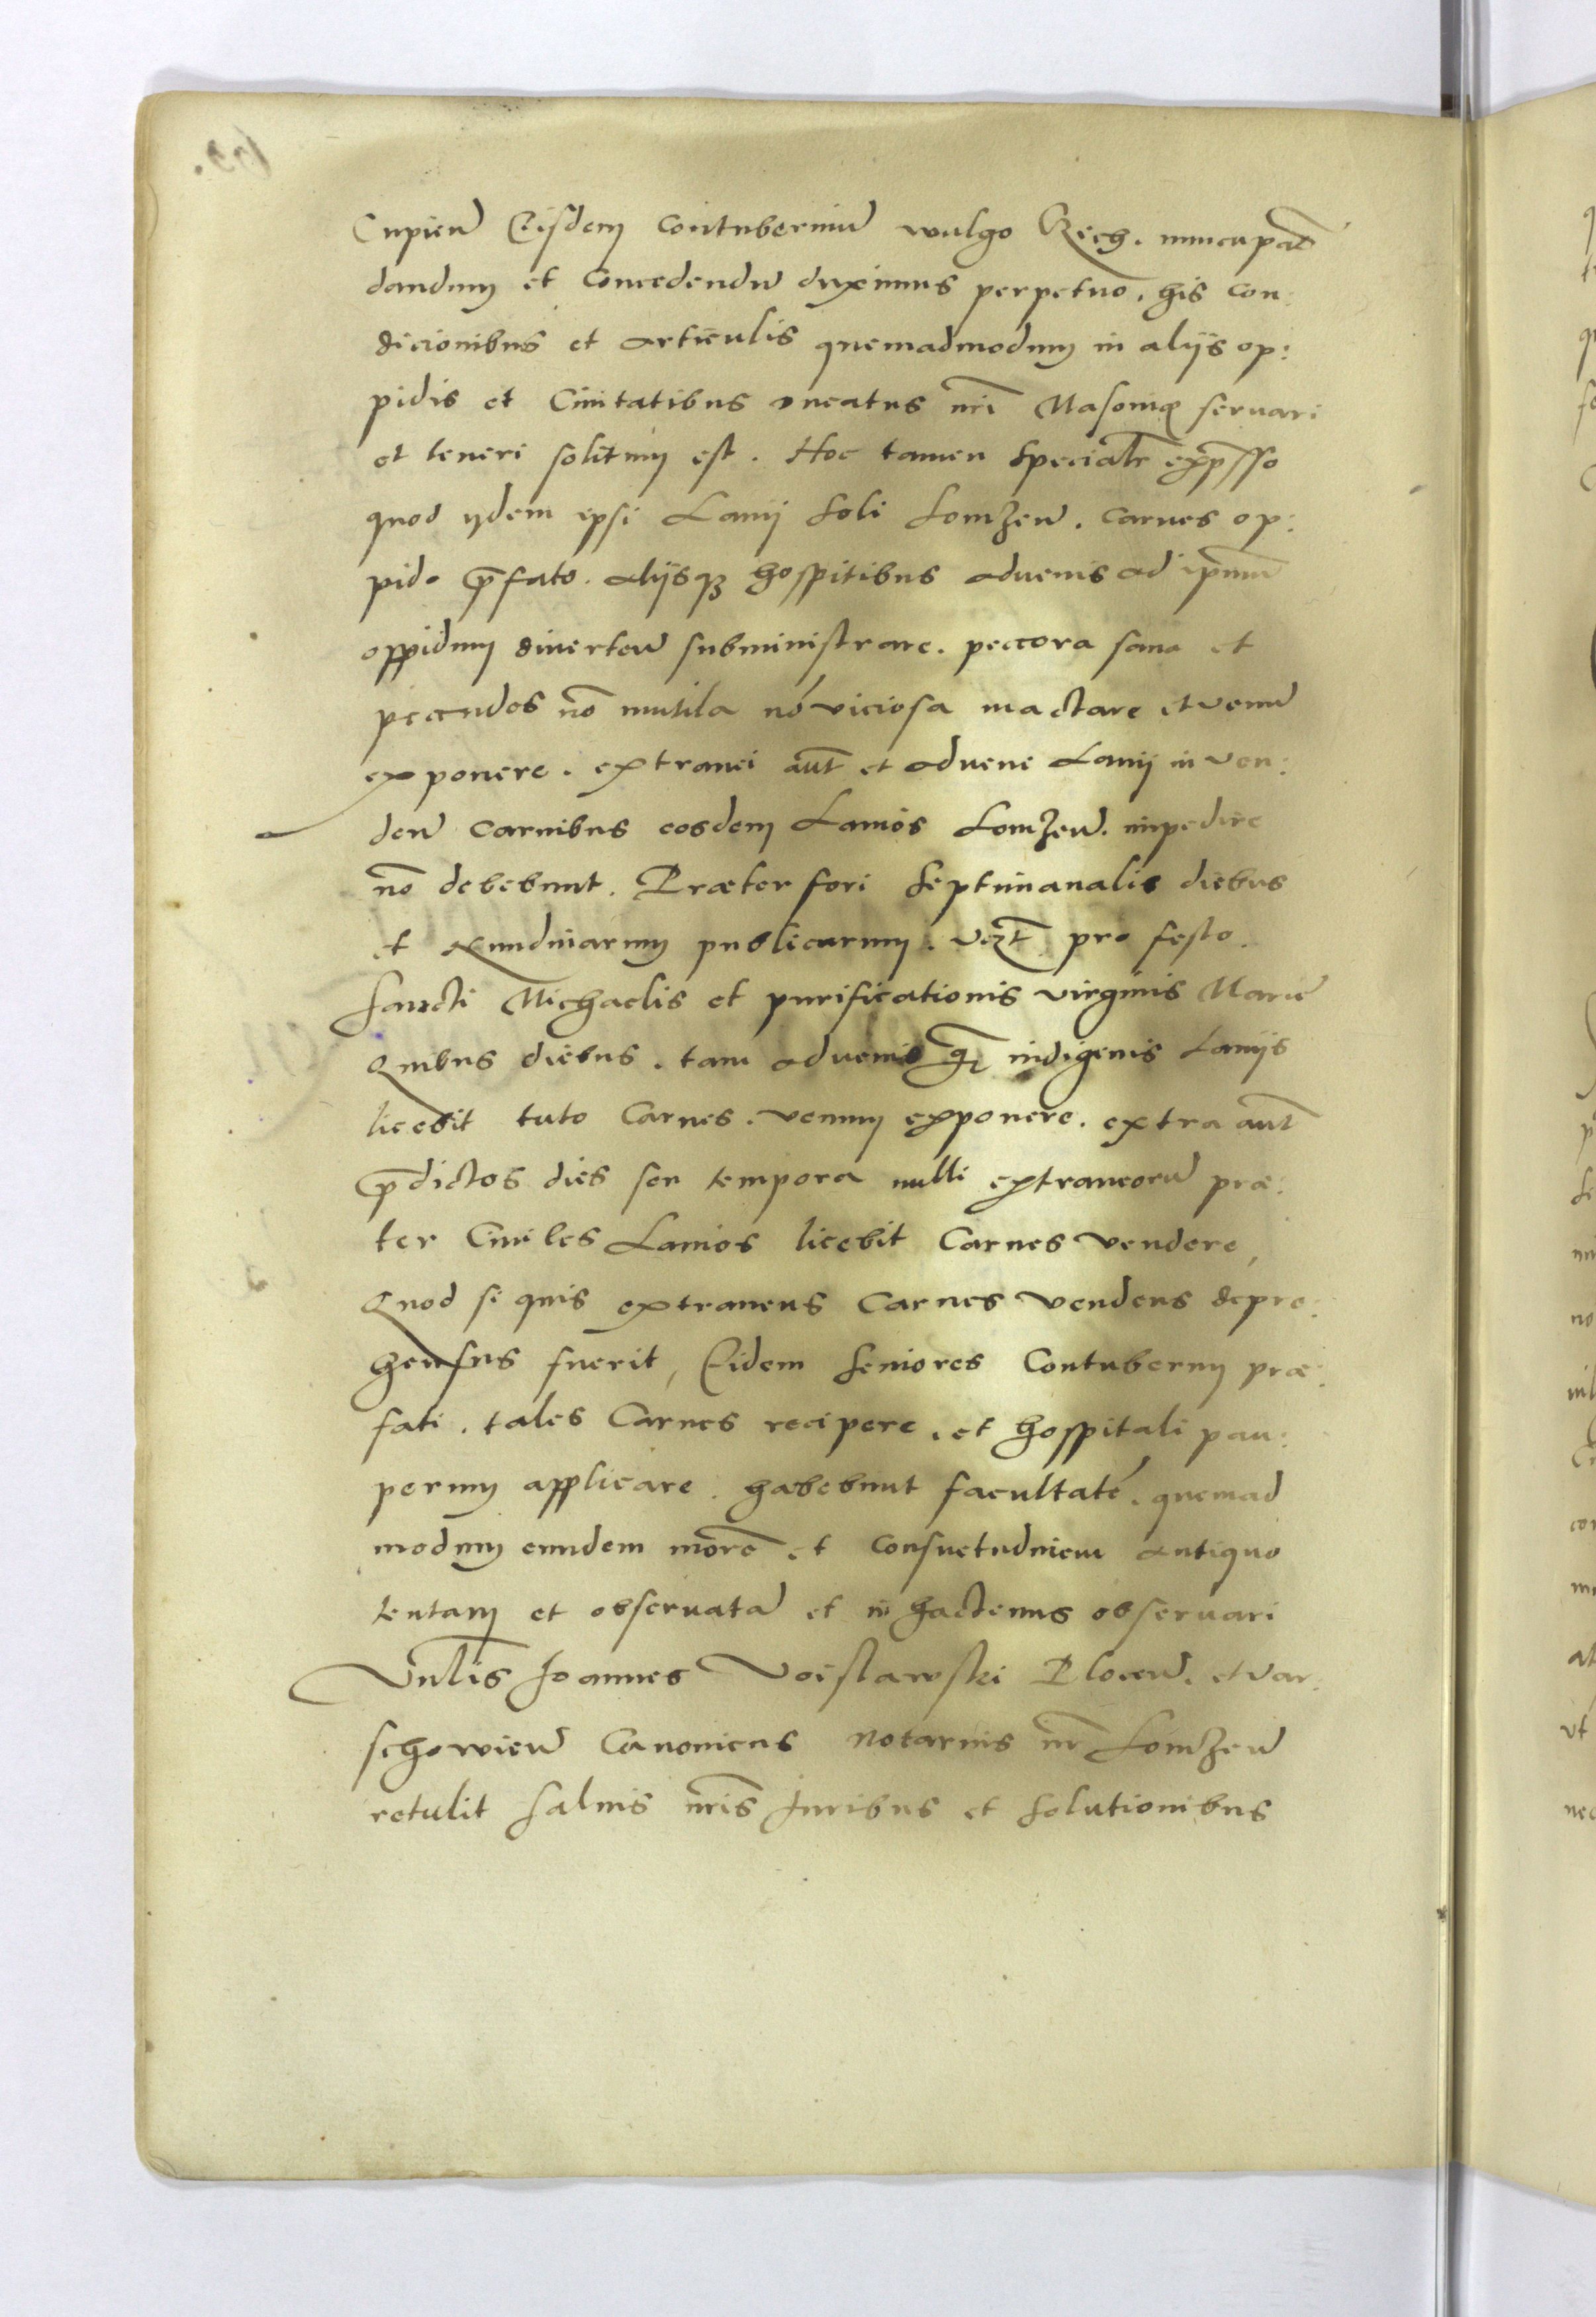 Cupien̄ Eisdem contuberniū wulgo Czech. nuncupat̄
dandum et Concedendū duximus perpetuo. his con:
dicionibus et articulis quemadmodum in alijs op:
pidis et Ciuitatibus ducatus nr̄i Masouię seruari
et teneri solitum est. Hoc tamen specialr̄ exp̄sso
quod ijdem ipsi Lanij soli Lomzen̄. carnes op:
pido p̄fato. alijsqȝ hospitibus aduenis ad ip̄mū
oppidum diuerten̄ subministrare. peccora sana et
peccudes nō mutila nō viciosa mactare et venū
exponere. extranei aūt et aduene Lanij in ven:
den̄ carnibus eosdem Lanios Lomzen̄. impedire
nō debebunt. Præter fori septimanalis diebus
et Nundinarum publicarum. vizt̄ pro festo.
sancti Michaelis et purificationis virginis Marie
Quibus diebus. tam aduenis q̄ indigenis Lanijs
licebit tuto Carnes. venum exponere. extra aūt
p̄dictos dies seu tempora nulli extraneorū præ:
ter Ciuiles Lanios licebit Carnes vendere,
Quod si quis extraneus Carnes vendens depre:
hensus fuerit, Eidem seniores Contubernij præ:
fati. tales Carnes recipere. et hospitali pau:
perum applicare. habebunt facultatē. quemad
modum eundem morē et consuetudinem antiquo
tentam et obseruatā et in hactenus obseruari
Vn̄lis Joannes Voislawski Plocen̄. et var:
schowien̄ Canonicus Notarius nr̄ Lomzen̄
retulit saluis nr̄is Juribus et solutionibus